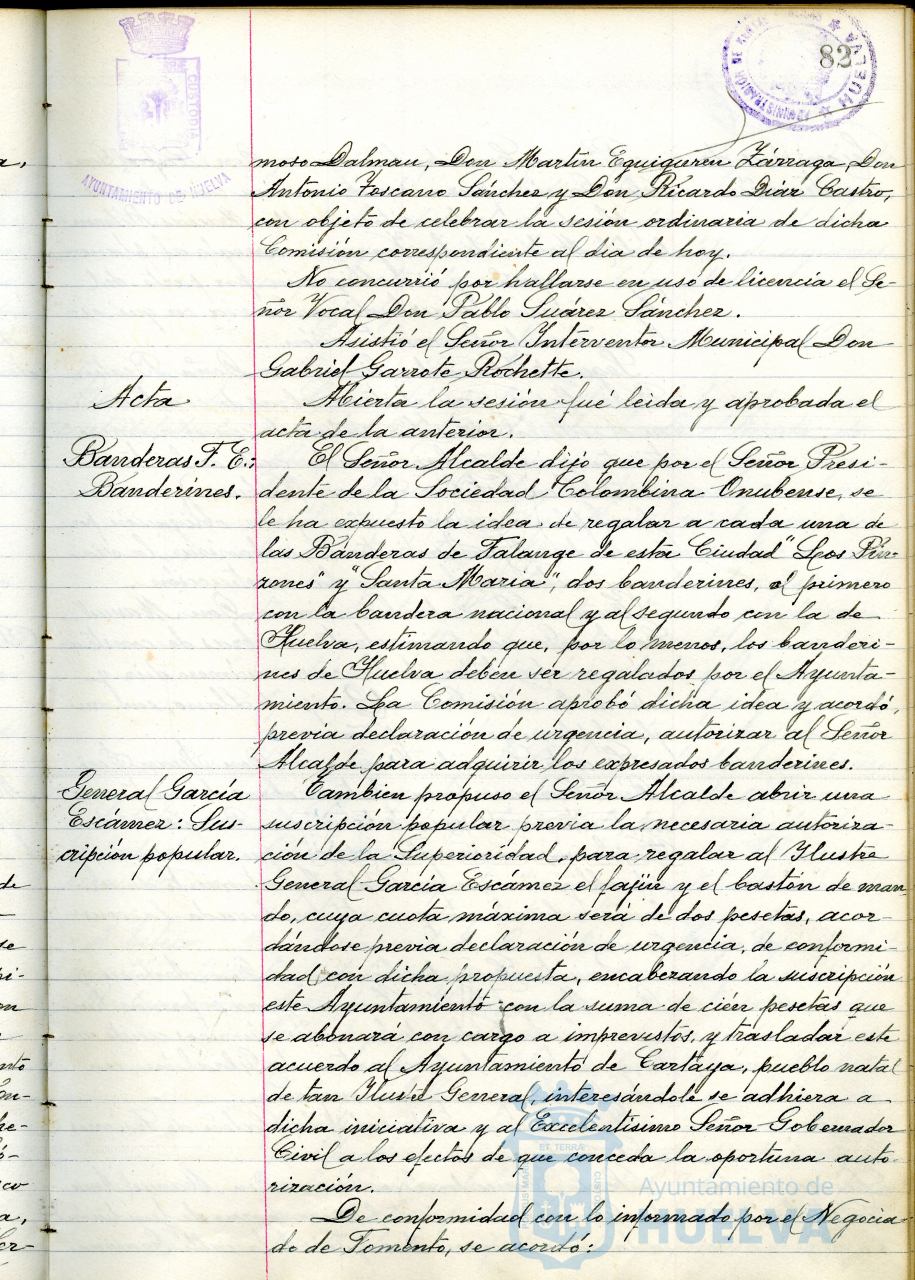 82
CUSTODIA
AYUNTAMIENTO DE HUELVA
HUELVA
moso Dalmau, Don Martín Eguiguren Zárraga, Don
Antonio Toscano Sánchez y Don Ricardo Díaz Castro,
con objeto de celebrar la sesión ordinaria de dicha
Comisión correspondiente al dia de hoy.
No concurrió por hallarse en uso de licencia el Se-
ñor Vocal Don Pablo Suárez Sánchez.
Asistió el Señor Interventor Municipal Don
Gabriel Garrote Rochette.
Acta
Abierta la sesión fué leida y aprobada el
acta de la anterior.
Banderas F. E.:
Banderines.
El Señor Alcalde dijo que por el Señor Presi-
dente de la Sociedad Colombina Onubense, se
le ha expuesto la idea de regalar a cada una de
las Banderas de Falange de esta Ciudad "Los Pin-
zones" y "Santa Maria", dos banderines, el primero
con la bandera nacional y al segundo con la de
Huelva, estimando que, por lo menos, los banderi-
nes de Huelva deben ser regalados por el Ayunta-
miento. La Comisión aprobó dicha idea y acordó,
previa declaración de urgencia, autorizar al Señor
Alcalde para adquirir los expresados banderines.
General García
Escámez: Sus-
cripción popular.
Tambien propuso el Señor Alcalde abrir una
suscripción popular previa la necesaria autoriza-
ción de la Superioridad, para regalar al Ilustre
General García Escámez el fajín y el bastón de man-
do, cuya cuota máxima será de dos pesetas, acor-
dándose previa declaración de urgencia, de conformi-
dad con dicha propuesta, encabezando la suscripción
este Ayuntamiento con la suma de cién pesetas que
se abonará con cargo a imprevistos, y trasladar este
acuerdo al Ayuntamiento de Cartaya, pueblo natal
de tan Ilustre General, interesándole se adhiera a
dicha iniciativa y al Excelentísimo Señor Gobernador
Civil a los efectos de que conceda la oportuna auto-
rización.
De conformidad con lo informado por el Negocia-
do de Fomento, se acordó:
Ayuntamiento de
HUELVA